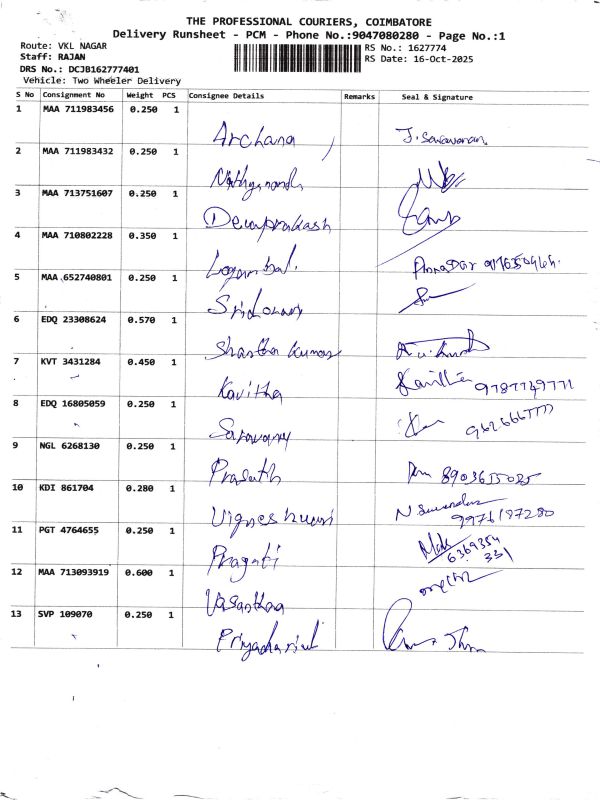 THE PROFESSIONAL COURIERS, COIMBATORE
Delivery Runsheet - PCM - Phone No.:9047080280 - Page No.:1
Route: VKL NAGAR
RS No.: 1627774
Staff: RAJAN
RS Date: 16-Oct-2025
DRS No.: DCJB162777401
Vehicle: Two Wheeler Delivery
S No Consignment No Weight PCS Consignee Details Remarks Seal & Signature
1 MAA 711983456 0.250 1
Archana J. Saravanan
2 MAA 711983432 0.250 1
3 MAA 713751607 0.250 1
Devaprakash
4 MAA 710802228 0.350 1
5 MAA 652740801 0.250 1
6 EDQ 23308624 0.570 1
Shantha Kumar
7 KVT 3431284 0.450 1
Kavitha Kavitha 9787749771
8 EDQ 16805059 0.250 1
Saravanan
9 NGL 6268130 0.250 1
Prasath 8903655025
10 KDI 861704 0.280 1
Vigneshwari 9976197280
11 PGT 4764655 0.250 1
Pragati 6369354
331
12 MAA 713093919 0.600 1
Vasantha
13 SVP 109070 0.250 1
Priyadarsini